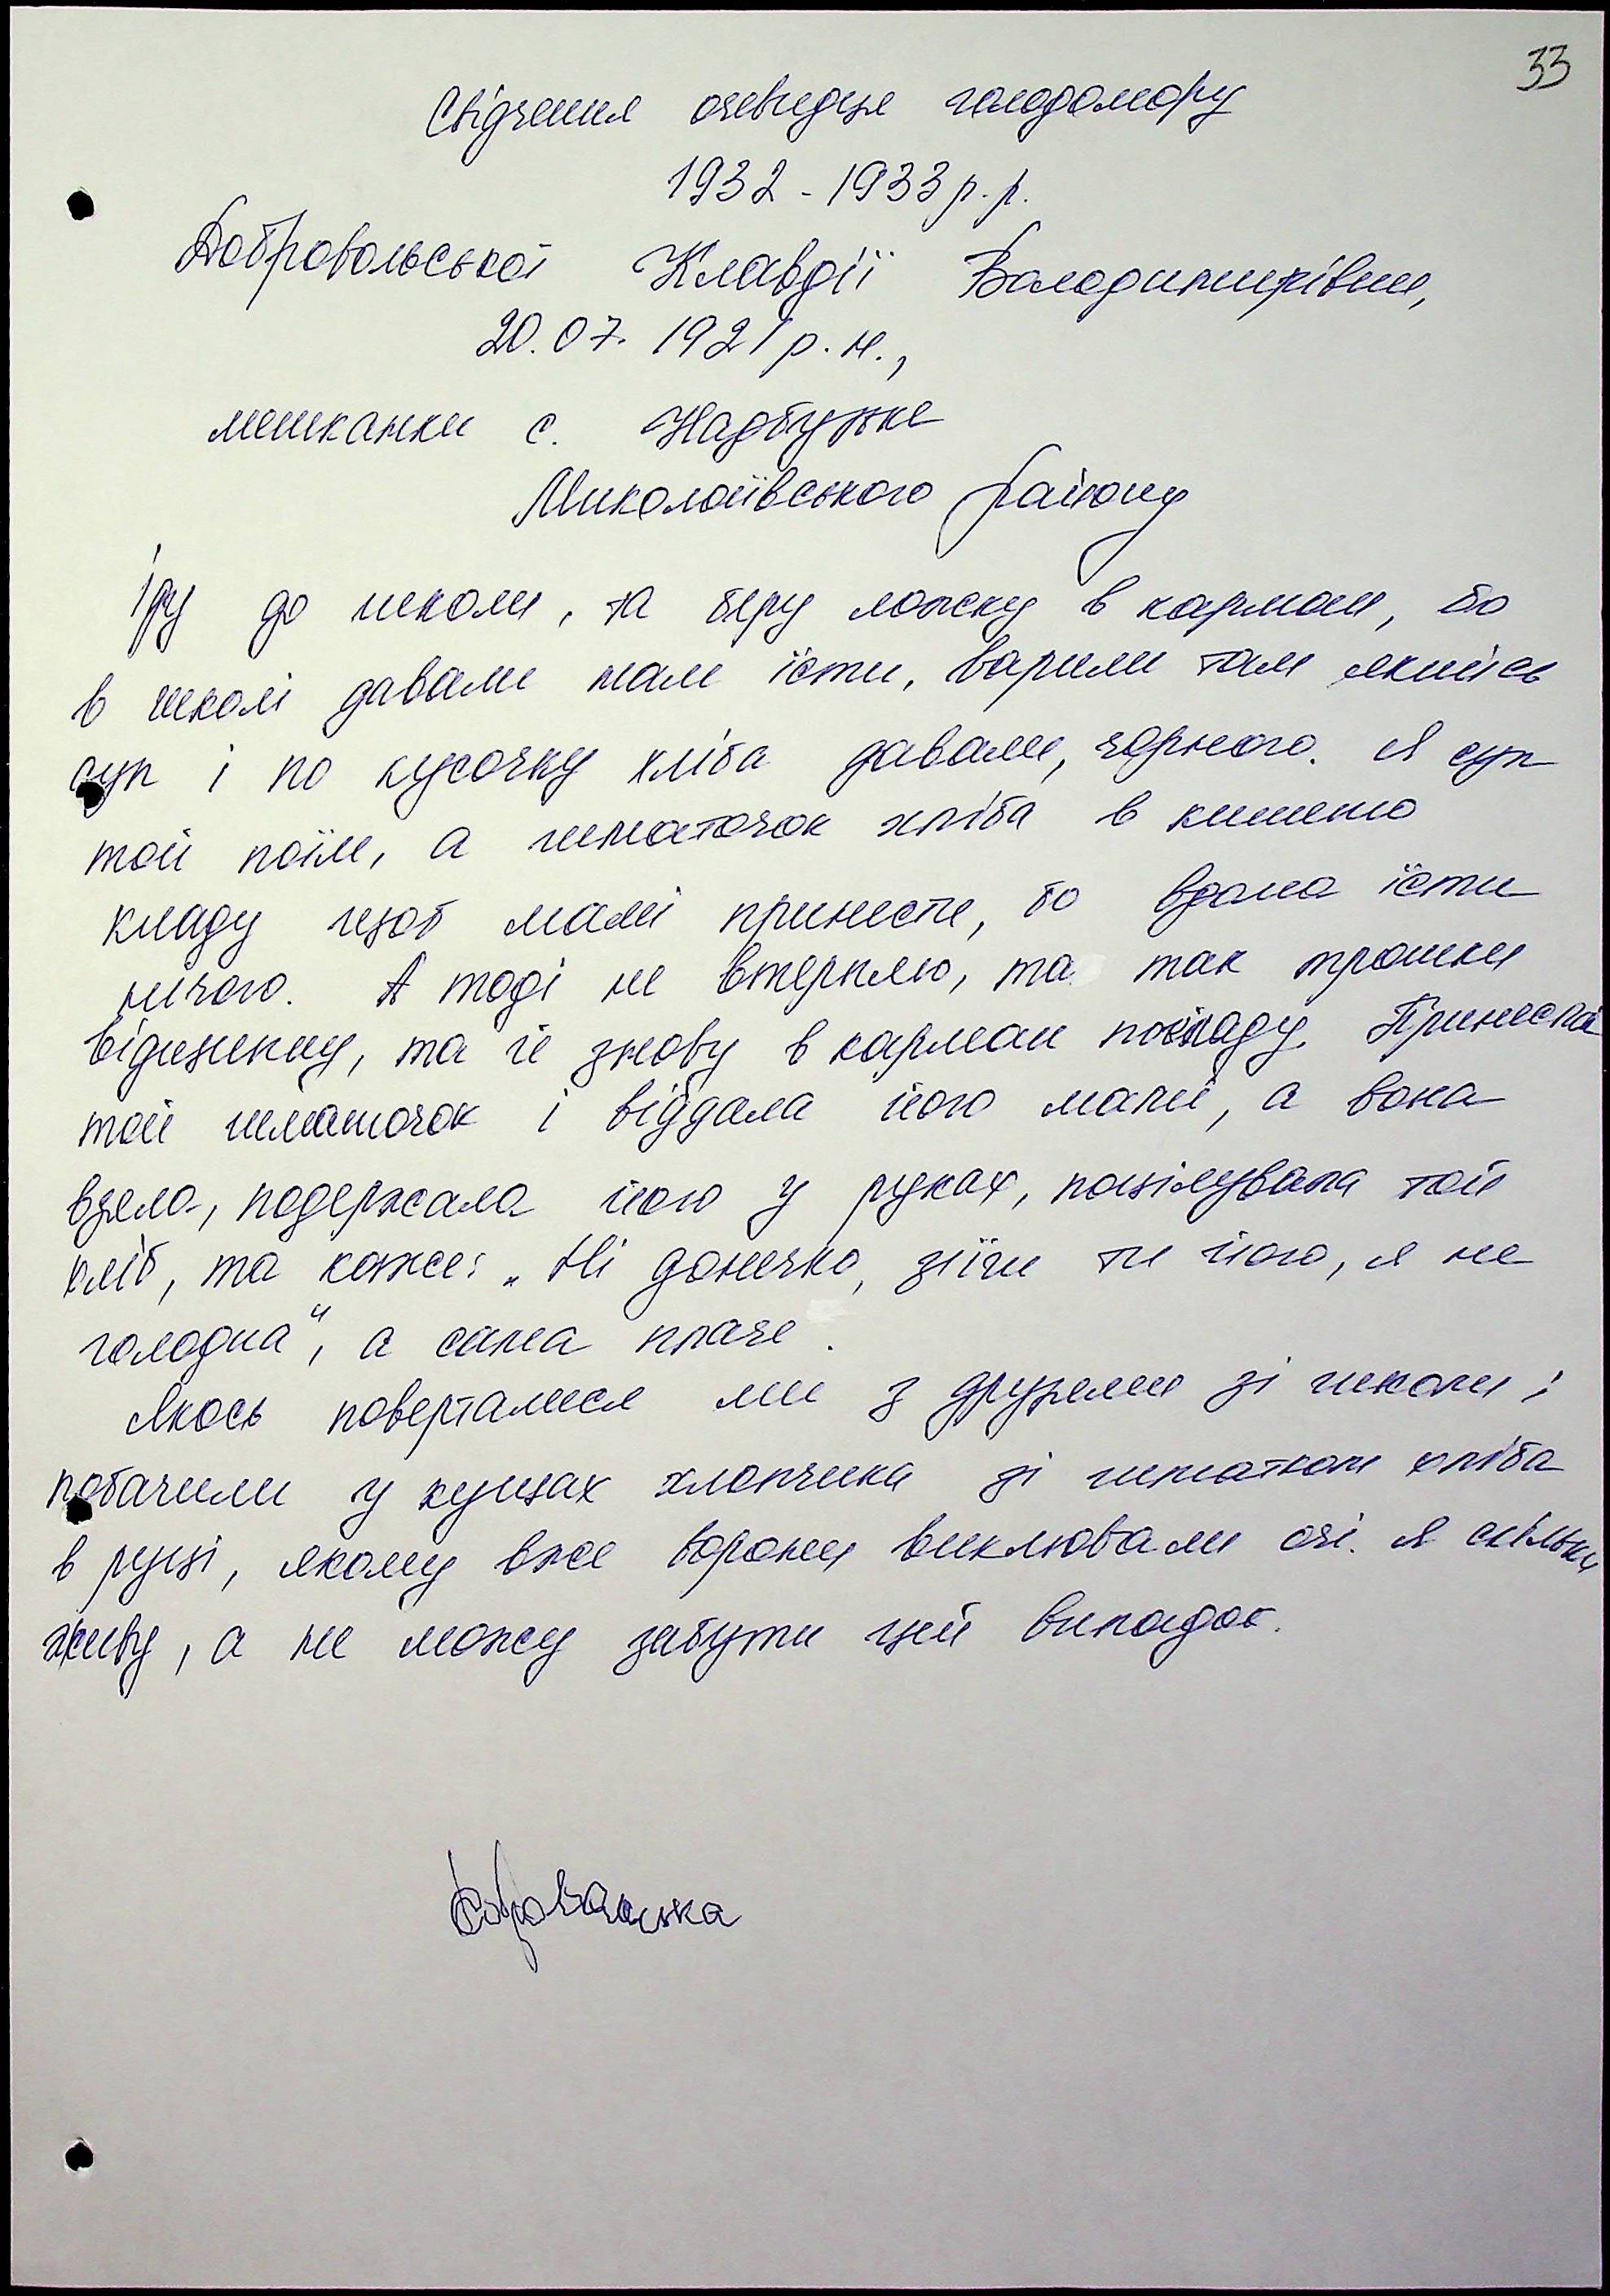 33
Свідчення очевидця голодомору
1932 - 1933 р.р.
Добровольської Клавдії Володимирівни,
20.07.1921 р.н.,
мешканки с. Надбузьке
Миколаївського району
Іду до школи, та беру ложку в карман, бо
в школі давали нам їсти, варили там якийсь
суп і по кусочку хліба давали, чорного. Я суп
той поїм, а шматочок хліба в кишеню
кладу щоб мамі принести, бо вдома їсти
нічого. А тоді не втерплю, та так трошки
відщипну, та й знову в карман покладу. Принесла
той шматочок і віддала його мамі, а вона
взяла, подержала його у руках, поцілувала той
хліб, та каже: „Ні донечко, зїїж ти його, я не
голодна", а сама плаче.
Якось поверталися ми з друзями зі школи і
побачили у кущах хлопчика зі шматком хліба
в руці, якому вже ворони виклювали очі. Я скільки
живу, а не можу забути цей випадок.
Добровольська